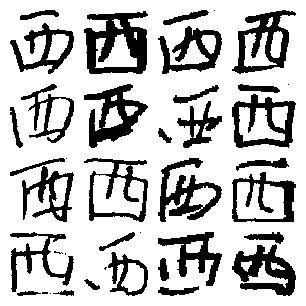 西西西西
西西西西
西西西西
西西西西